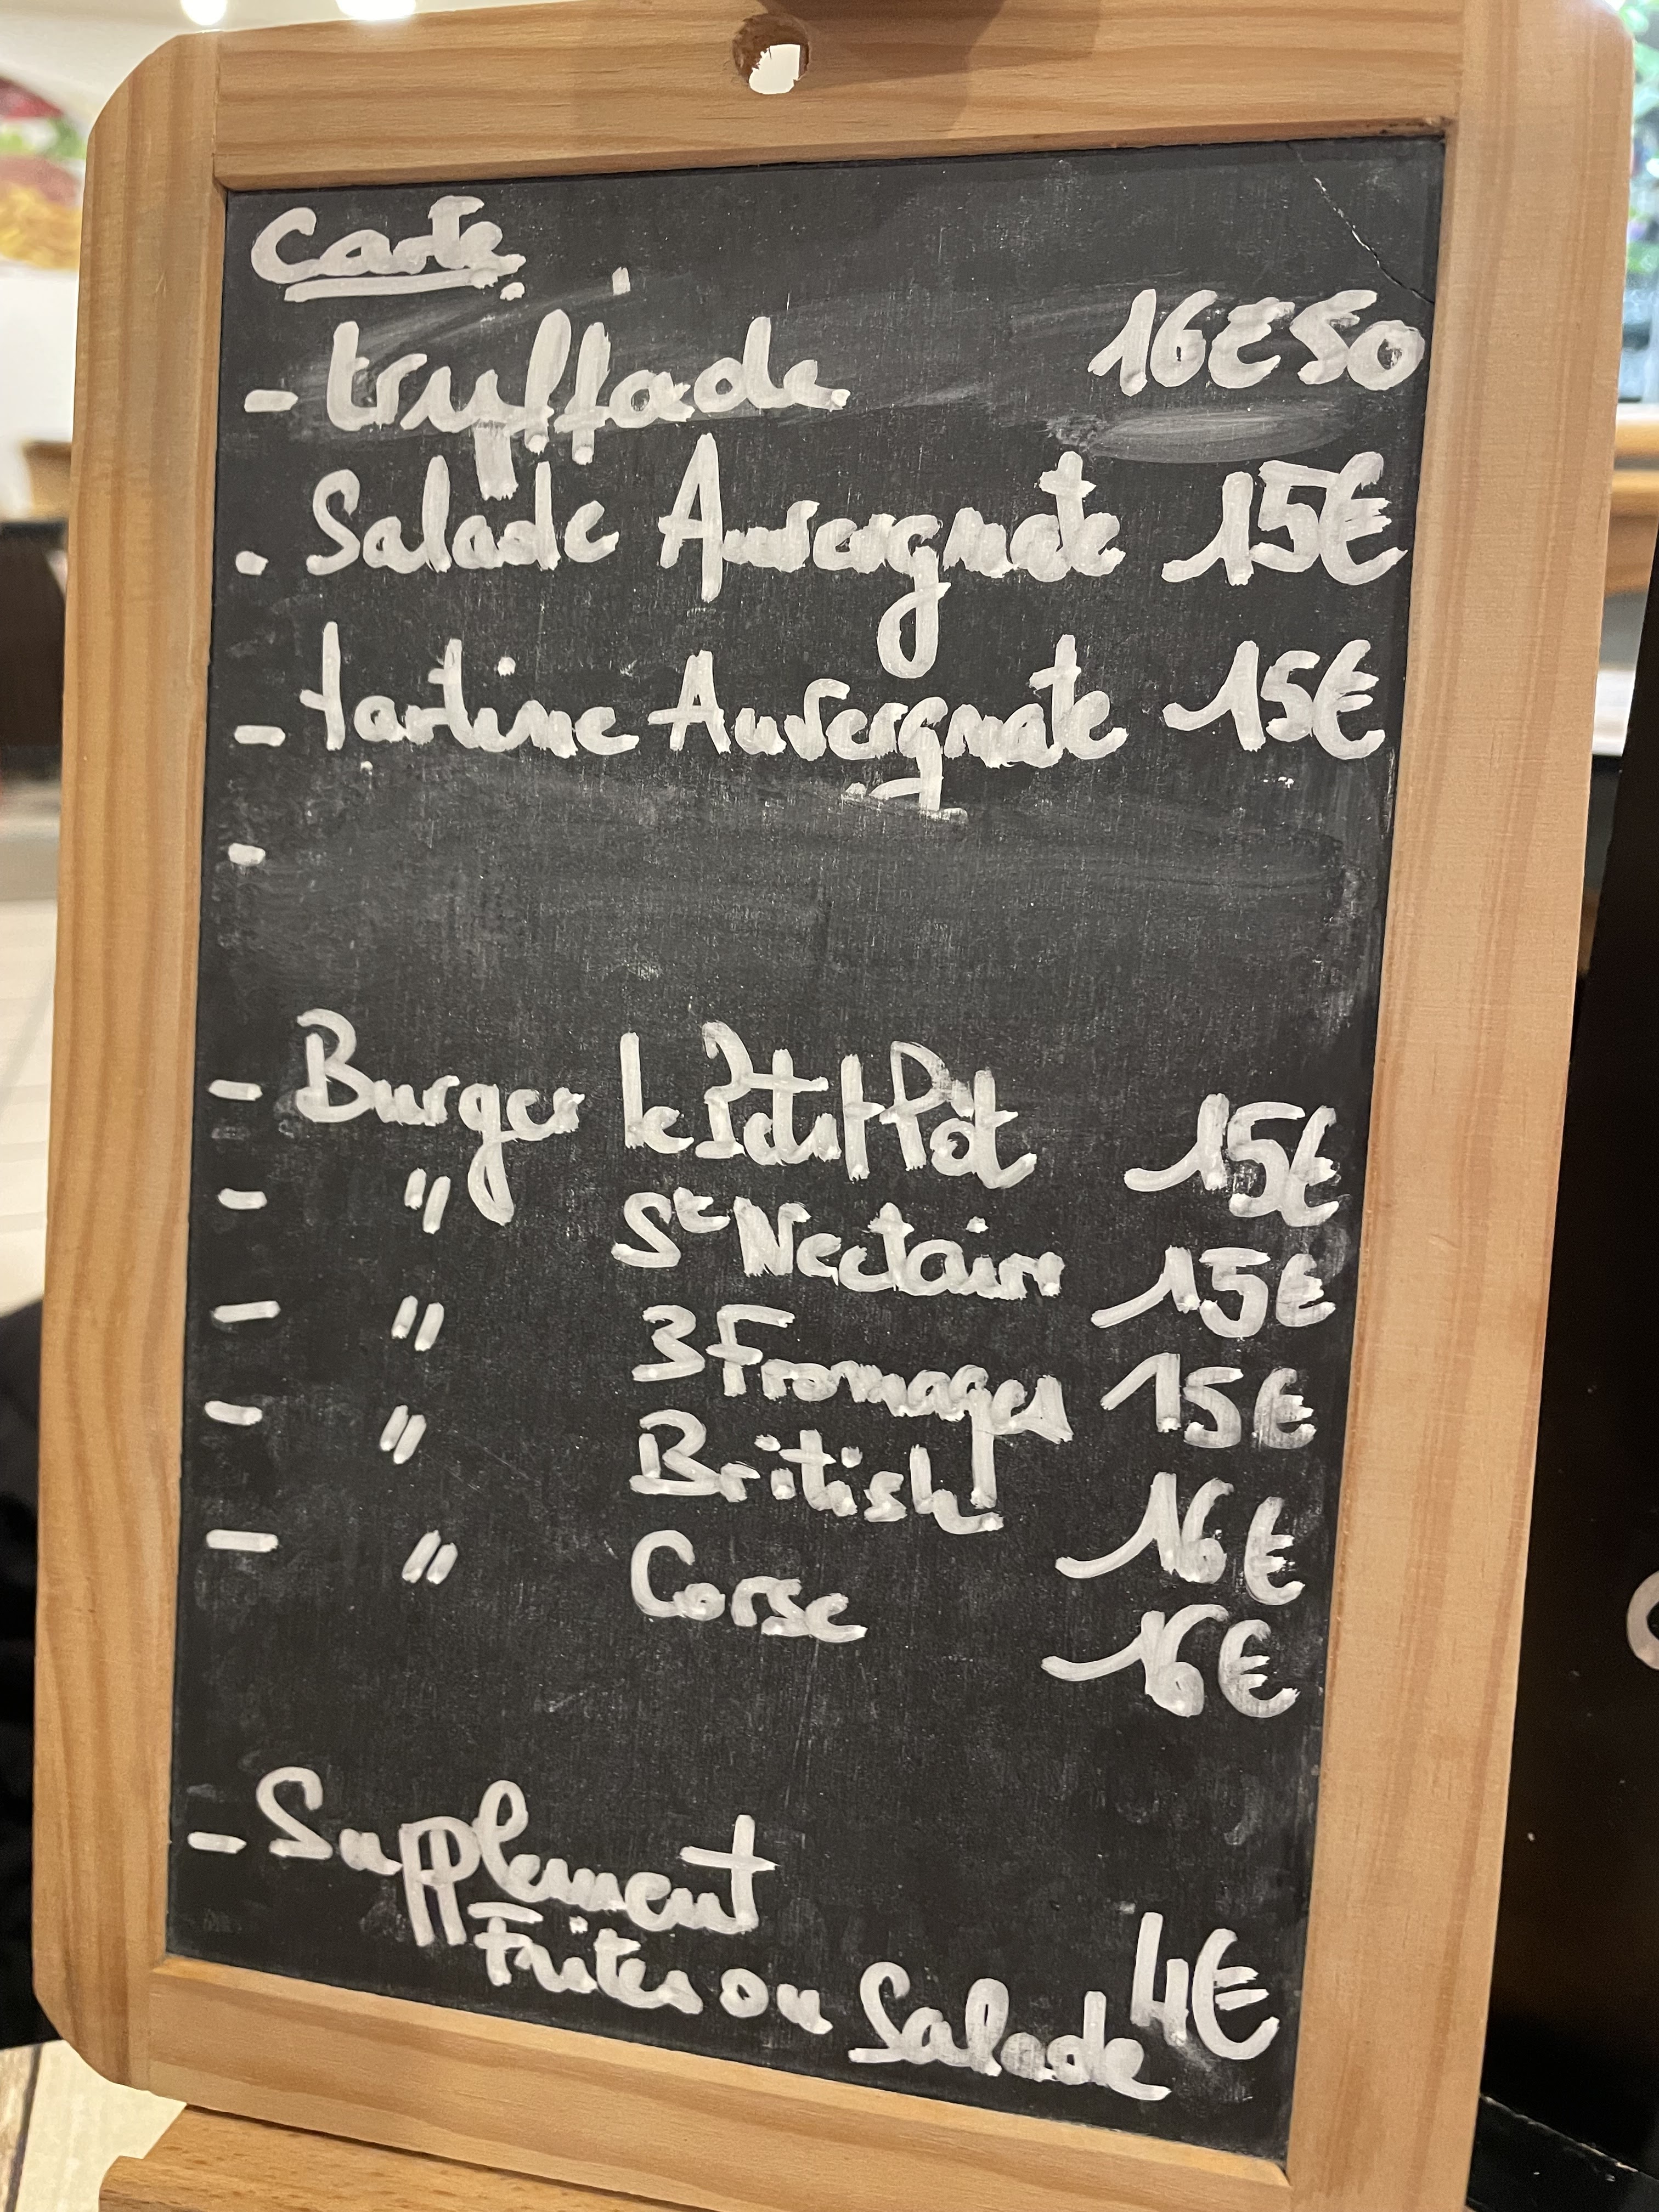 Carte
- truffade 16€50
. Salade Auvergnate 15€
- tartine Auvergnate 15€
-
- Burger le Petit Pot 15€
- " St Nectaire 15€
- " 3 Fromages 15€
- " British 16€
- " Corse 16€
- Supplement
Frites ou Salade 4€